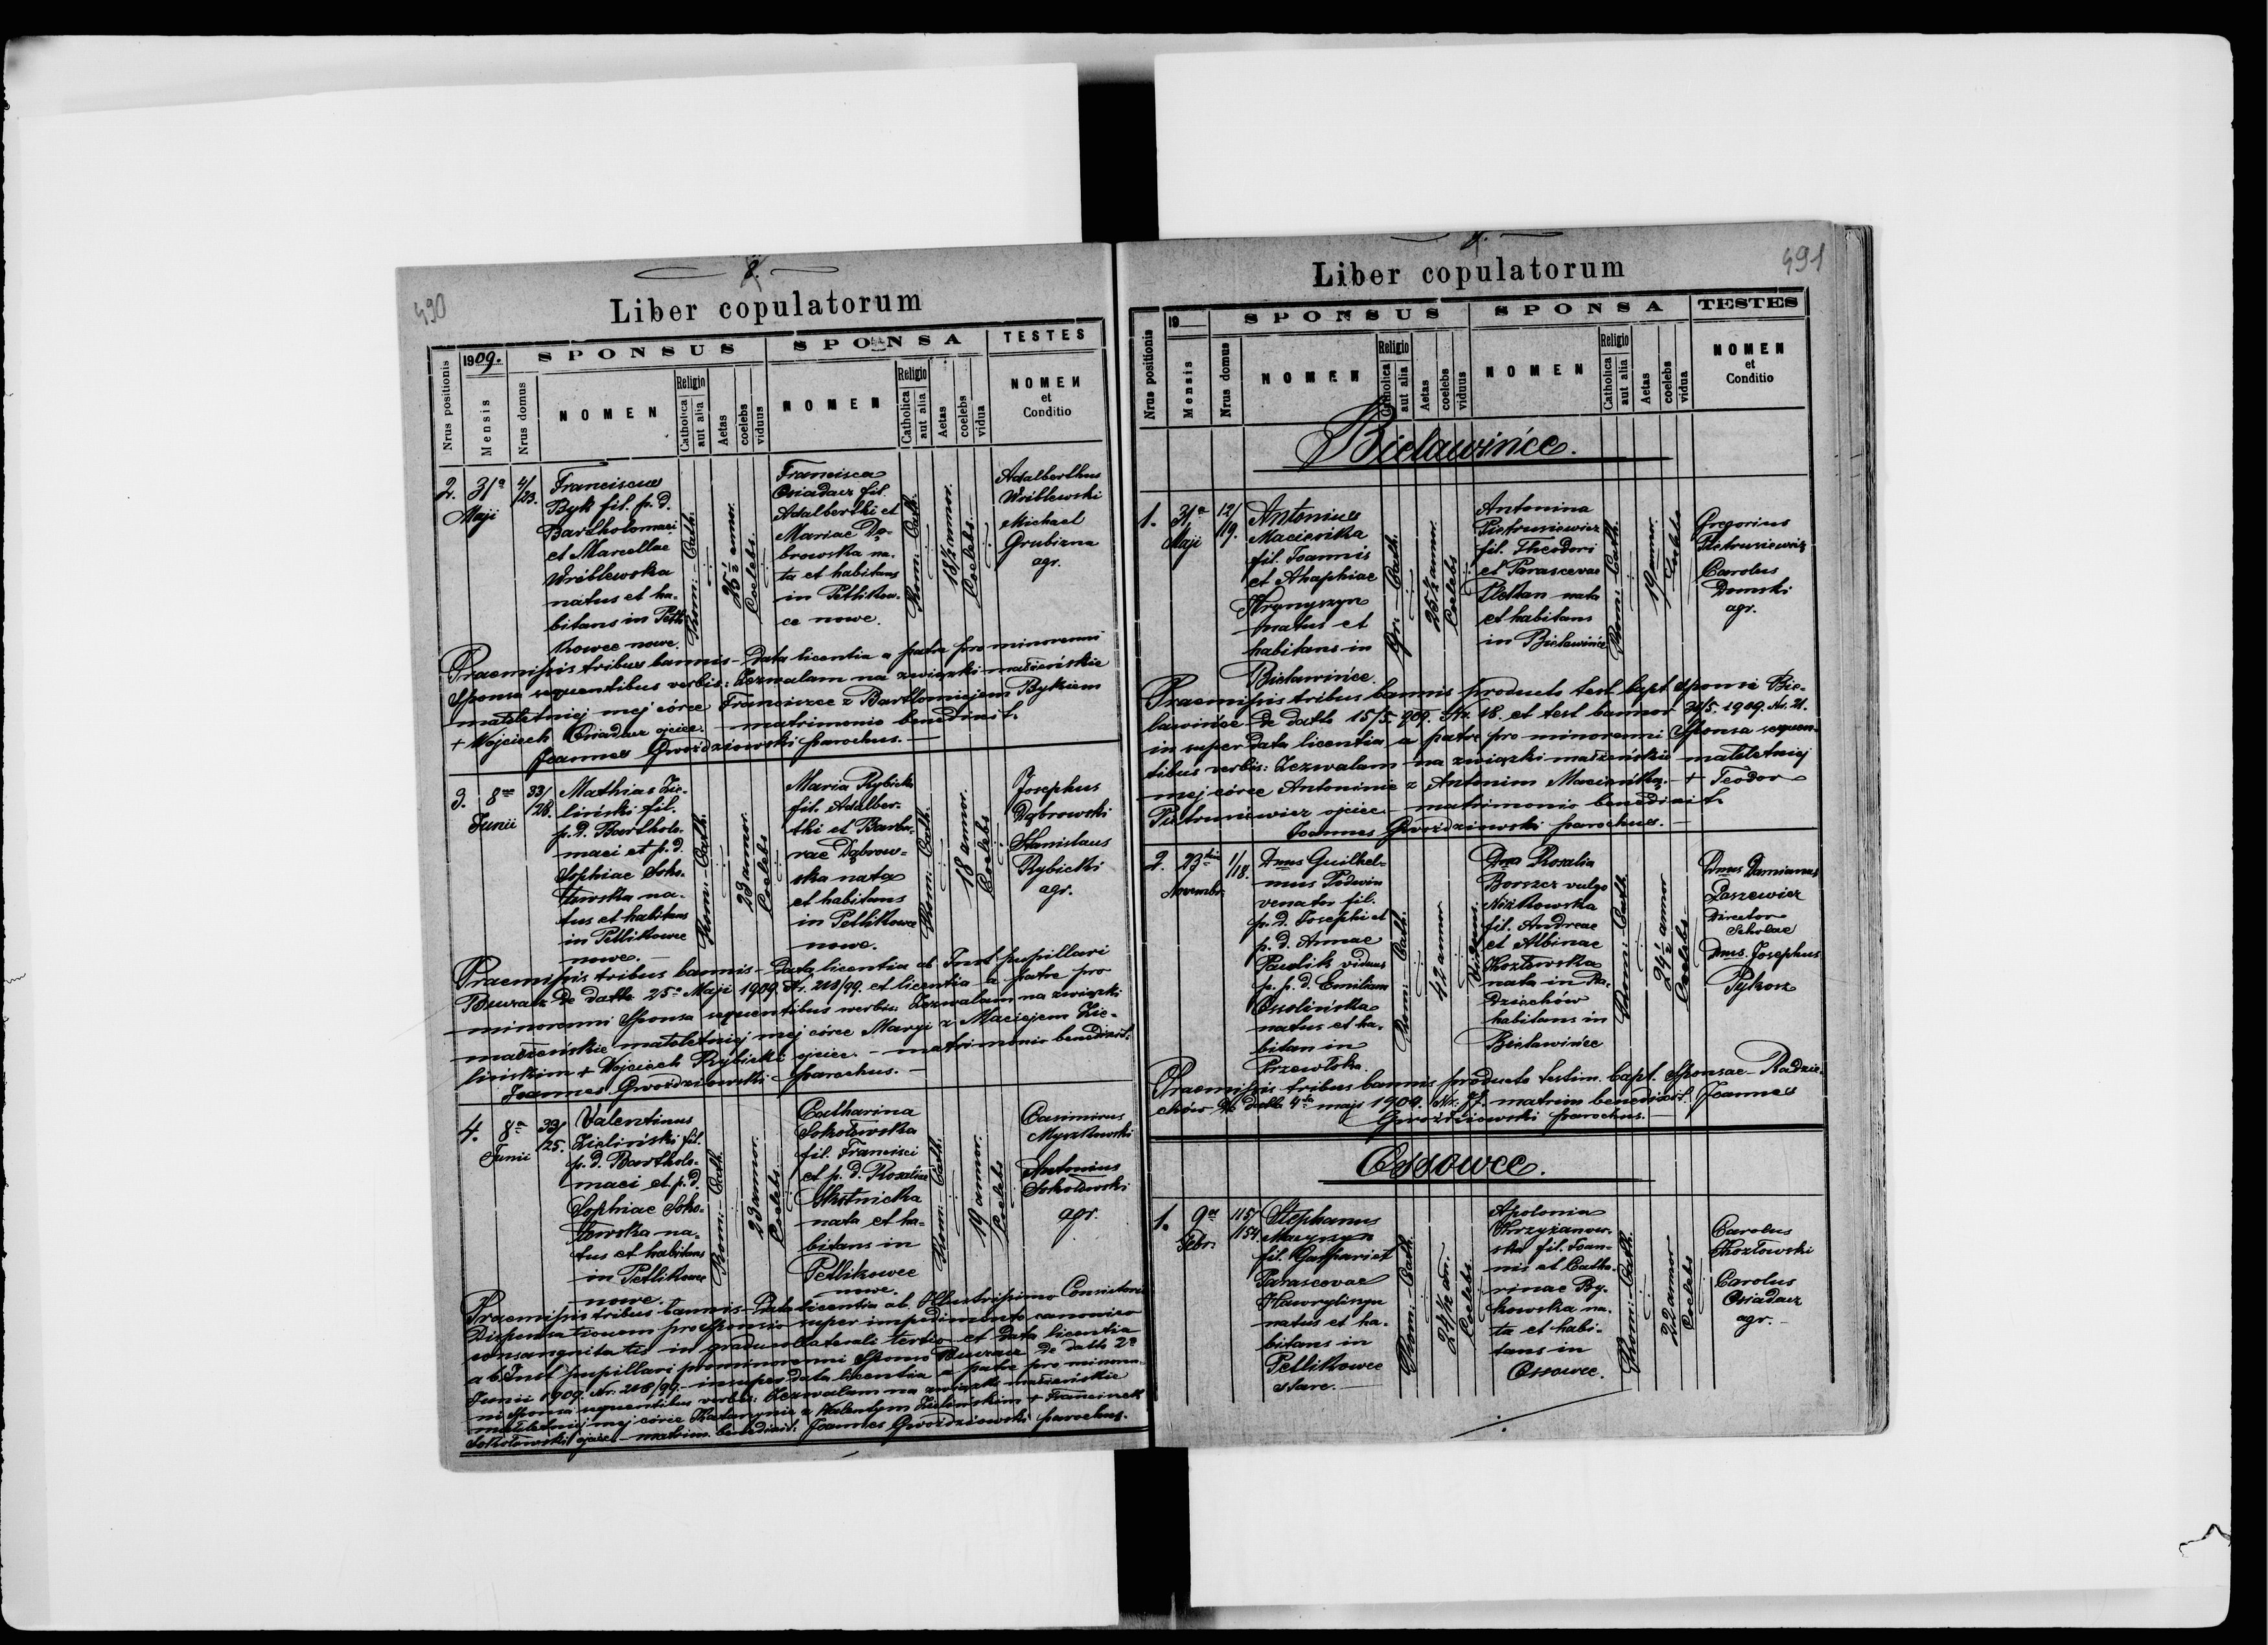 490
8.
Liber copulatorum
Nrus positionis
1909.
Mensis
Nrus domus
SPONSUS
NOMEN
Religio
Catholica
aut alia
Aetas
coelebs
viduus
SPONSA
NOMEN
Religio
Catholica
aut alia
Aetas
coelebs
vidua
TESTES
NOMEN
et
Conditio
2.
31a
Maji
4/
123.
Franciscus
Byk fil. p. d.
Bartholomaei
et Marcellae
Wróblewska
natus et ha-
bitans in Petli
kowce nowe.
Rom: Cath.
25½ annor.
Coelebs.
Francisca
Osiadacz fil.
Adalberthi et
Mariae Dą-
browska na-
ta et habitans
in Petlikow-
ce nowe.
Rom: Cath.
18½ annor.
Coelebs.
Adalberthus
Wróblewski
Michael
Grubizna
agr.
Praemissis tribus bannis - data licentia a patre pro minorenni
Sponsa sequentibus verbis: Zezwalam na związki małżeńskie
małoletniej mej córce Franciszce z Bartłomiejem Bykiem
+ Wojciech Osiadacz ojciec. - matrimonio benedixit.
Joannes Gwoździowski parochus.
3.
8va
Junii
33/
128.
Mathias Zie-
liński fil.
p. d. Bartholo-
maei et p. d.
Sophiae Soko-
łowska na-
tus et habitans
in Petlikowce
nowe. -
Rom: Cath.
23 annor.
Coelebs
Maria Rybicka
fil. Adalber-
thi et Barba-
rae Dąbrow-
ska nata
et habitans
in Petlikowce
nowe.
Rom: Cath.
18 annor.
Coelebs
Josephus
Dąbrowski
Stanislaus
Rybicki
agr.
Praemissis tribus bannis - Data licentia ab Inst pupillari
Buczacz de datto 25a Maji 1909 Nr. 218/99. et licentia a patre pro
minorenni Sponsa sequentibus verbis: Zezwalam na związki
małżeńskie małoletniej mej córce Maryi z Maciejem Zie-
lińskim + Wojciech Rybicki ojciec. - matrimonio benedixit.
Joannes Gwoździowski parochus. -
4.
8a
Junii
33/
125.
Valentinus
Zieliński fil.
p. d. Bartholo-
maei et p. d.
Sophiae Soko-
łowska na-
tus et habitans
in Petlikowce
nowe.
Rom: Cath.
23 annor.
Coelebs.
Catharina
Sokołowska
fil. Francisci
et p. d. Rosaliae
Skotnicka
nata et ha-
bitans in
Petlikowce
nowe.
Rom: Cath.
19 annor.
Coelebs
Casimirus
Myszkowski
Antonius
Sokołowski
agr.
Praemissis tribus bannis - Data licentia ab Illustrissimo Consistorio
Dispensationem pro Sponsis super impedimento canonico
consangnitatis in gradu collaterali tertio et data licentia
ab Inst pupillari prominorenni Sponso Buczacz de datto 2a
Junii 1909. Nr. 218/99. - insuper data licentia a patre pro minore-
ni Sponsa sequentibus verbis: Zezwalam na związki małżeńskie
małoletniej mej córce Katarzynie z Walentym Zielińskim + Franciszek
Sokołowski ojciec - matrim. benedixit: Joannes Gwoździowski parochus.
491
9.
Liber copulatorum
Nrus positionis
19
Mensis
Nrus domus
SPONSUS
NOMEN
Religio
Catholica
aut alia
Aetas
coelebs
viduus
SPONSA
NOMEN
Religio
Catholica
aut alia
Aetas
coelebs
vidua
TESTES
NOMEN
et
Conditio
Bielawińce.
1.
31a
Maji
12/
19.
Antonius
Maciewka
fil. Joannis
et Ahaphiae
natus et
habitans in
Bielawińce.
Gr: Cath.
25½ annor.
Coelebs
Antonina
Pietrusiewicz
fil. Theodori
et Parascevae
nata
et habitans
in Bielawińce
Rom: Cath.
19 annor.
Coelebs
Gregorius
Pietrusiewicz
Carolus
Domski
agr.
Praemissis tribus bannis producto test bapt. sponsi Bie-
lawińce de datto 15/5. 909. Nr. 18. et test bannor 30/5. 1909. Nr. 21.
in super data licentia a patre pro minorenni Sponsa sequen-
tibus verbis: Zezwalam na związki małżeńskie małoletniej
mej córce Antoninie z Antonim + Teodor
Pietrusiewicz ojciec - matrimonio benedixit.
Joannes Gwoździowski parochus. -
2.
23tia
Novembr.
1/
18.
Dnus Guilhel-
mus Podwin
venator fil.
p. d. Josephi et
p. d. Annae
Pawlik viduus
p. p. d. Emiliam
Ossolińska
natus et ha-
bitan in
Przewłoka.
Rom: Cath.
42 annor.
Viduus.
Dna Rosalia
Borszcz vulgo
Niżkowska
fil. Andreae
et Albinae
Kozłowska
nata in Ra-
dziechów
habitans in
Bielawińce
Rom: Cath.
24½ annor
Coelebs
Dnus Damianus
Laszewicz
Director
Scholae
Dnus. Josephus
Pykosz
Praemissis tribus bannis producto testim. bapt. Sponsae - Radzie-
chów de datto 4ta maji 1909. Nr. 77. matrim benedixit. Joannes
Gwoździowski parochus. -
Ossowce.
1.
9a
Febr.
115/
154
Stephanus
Maryszyn
fil. Gaspari et
Parascevae
Hawryliszyn
natus et ha-
bitans in
Petlikowce
stare. -
Rom: Cath.
Coelebs.
Apolonia
Krzyżanow-
ska fil. Joan-
nis et Catha-
rinae By-
kowska na-
ta et habi-
tans in
Ossowce.
Rom: Cath.
22 annor
Coelebs
Carolus
Kozłowski
Carolus
Osiadacz
agr. -